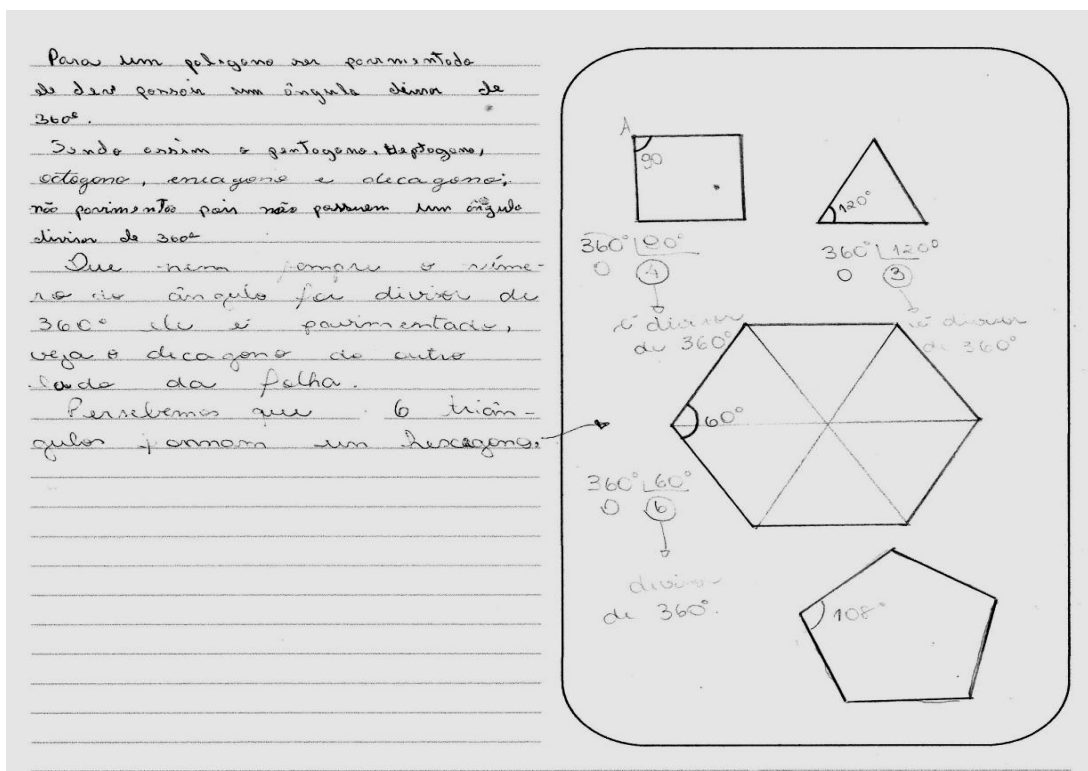 Para um poligono ser pavimentado
ele deve possuir um ângulo divisor de
360º.
Sendo assim o pentagono, Heptagono,
octogono, eneagono e decagono;
não pavimentas pois não possuem um ângulo
divisor de 360º
Que nem sempre o núme-
ro do ângulo for divisor de
360º ele é pavimentado,
veja o decagono do outro
lado da folha.
Persebemos que 6 triân-
gulos formam um hexagono.
A
90
360° 90°
0 4
é divisor
de 360°
120°
360° 120°
0 3
é divisor
de 360°
60°
360° 60°
0 6
divisor
de 360°.
108°